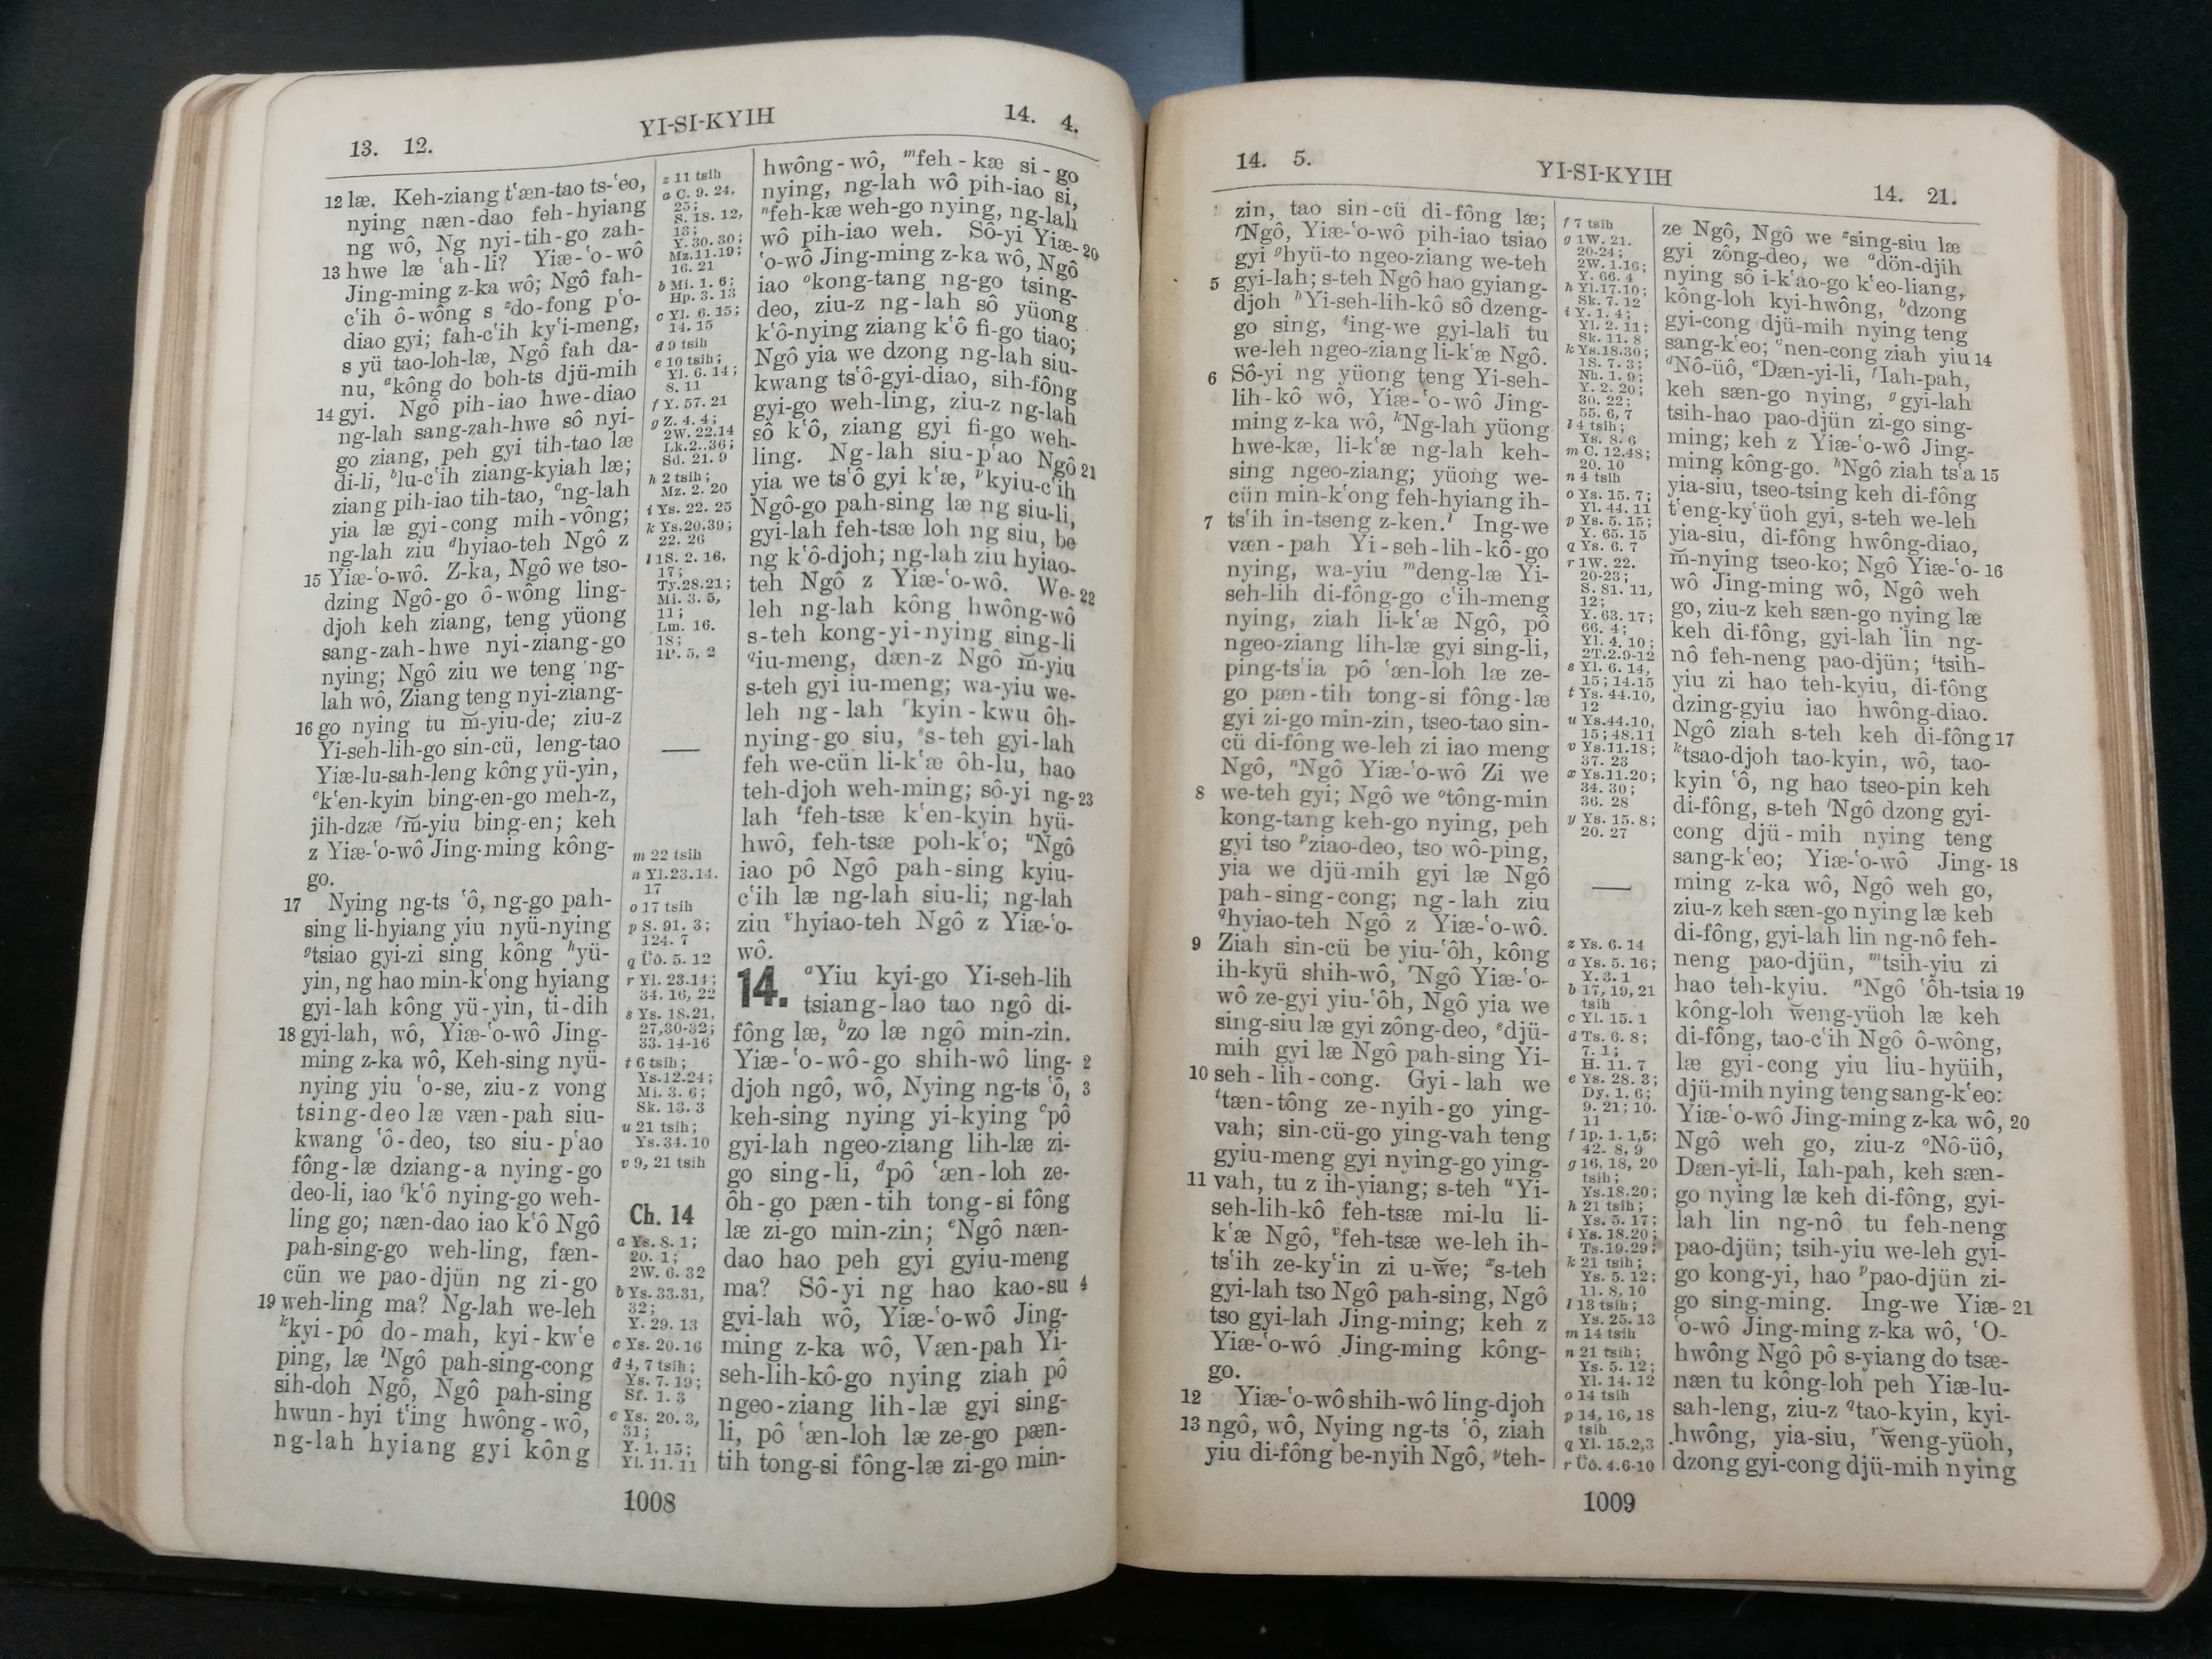 13. 12.
YI-SI-KYIH
14. 4.
12 læ. Keh-ziang t‘æn-tao ts-‘eo,
nying næn-dao feh-hyiang
ng wô, Ng nyi-tih-go zah-
13 hwe læ ‘ah-li? Yiæ-‘o-wô
Jing-ming z-ka wô; Ngô fah-
c‘ih ô-wông s zdo-fong p‘o-
diao gyi; fah-c‘ih ky‘i-meng,
s yü tao-loh-læ, Ngô fah da-
nu, akông do boh-ts djü-mih
14 gyi. Ngô pih-iao hwe-diao
ng-lah sang-zah-hwe sô nyi-
go ziang, peh gyi tih-tao læ
di-li, blu-c‘ih ziang-kyiah læ;
ziang pih-iao tih-tao, cng-lah
yia læ gyi-cong mih-vông;
ng-lah ziu dhyiao-teh Ngô z
15 Yiæ-‘o-wô. Z-ka, Ngô we tso-
dzing Ngô-go ô-wông ling-
djoh keh ziang, teng yüong
sang-zah-hwe nyi-ziang-go
nying; Ngô ziu we teng ng-
lah wô, Ziang teng nyi-ziang-
16 go nying tu m̆-yiu-de; ziu-z
Yi-seh-lih-go sin-cü, leng-tao
Yiæ-lu-sah-leng kông yü-yin,
ek‘en-kyin bing-en-go meh-z,
jih-dzæ fm̆-yiu bing-en; keh
z Yiæ-‘o-wô Jing-ming kông-
go.
17 Nying ng-ts ‘ô, ng-go pah-
sing li-hyiang yiu nyü-nying
gtsiao gyi-zi sing kông hyü-
yin, ng hao min-k‘ong hyiang
gyi-lah kông yü-yin, ti-dih
18 gyi-lah, wô, Yiæ-‘o-wô Jing-
ming z-ka wô, Keh-sing nyü-
nying yiu ‘o-se, ziu-z vong
tsing-deo læ væn-pah siu-
kwang ‘ô-deo, tso siu-p‘ao
fông-læ dziang-a nying-go
deo-li, iao ik‘ô nying-go weh-
ling go; næn-dao iao k‘ô Ngô
pah-sing-go weh-ling, fæn-
cün we pao-djün ng zi-go
19 weh-ling ma? Ng-lah we-leh
kkyi-pô do-mah, kyi-kw‘e
ping, læ lNgô pah-sing-cong
sih-doh Ngô, Ngô pah-sing
hwun-hyi t‘ing hwông-wô,
ng-lah hyiang gyi kông
z 11 tsih
a C. 9. 24,
25;
S. 18. 12,
13;
Y. 30. 30;
Mz.11.19;
16. 21
b Mi. 1. 6;
Hp. 3. 13
c Yl. 6. 15;
14. 15
d 9 tsih
e 10 tsih;
Yl. 6. 14;
8. 11
f Y. 57. 21
g Z. 4. 4;
2W. 22.14
Lk.2..36;
Sd. 21. 9
h 2 tsih;
Mz. 2. 20
i Ys. 22. 25
k Ys.20.39;
22. 26
l 1S. 2. 16,
17;
Ty.28.21;
Mi. 3. 5,
11;
Lm. 16.
18;
1P. 5. 2
m 22 tsih
n Yl.23.14.
17
o 17 tsih
p S. 91. 3;
124. 7
q Üô. 5. 12
r Yl. 23.14;
34. 16, 22
s Ys. 18.21,
27,30-32;
33. 14-16
t 6 tsih;
Ys.12.24;
Mi. 3. 6;
Sk. 13. 3
u 21 tsih;
Ys.34.10
v 9, 21 tsih
Ch. 14
a Ys. 8. 1;
20. 1;
2W. 6. 32
b Ys. 33.31,
32;
Y. 29. 13
c Ys. 20. 16
d 4, 7 tsih;
Ys. 7. 19;
Sf. 1. 3
e Ys. 20. 3,
31;
Y. 1. 15;
Yl. 11. 11
hwông-wô, mfeh-kæ si-go
nying, ng-lah wô pih-iao si,
nfeh-kæ weh-go nying, ng-lah
wô pih-iao weh. Sô-yi Yiæ- 20
‘o-wô Jing-ming z-ka wô, Ngô
iao okong-tang ng-go tsing-
deo, ziu-z ng-lah sô yüong
k‘ô-nying ziang k‘ô fi-go tiao;
Ngô yia we dzong ng-lah siu-
kwang ts‘ô-gyi-diao, sih-fông
gyi-go weh-ling, ziu-z ng-lah
sô k‘ô, ziang gyi fi-go weh-
ling. Ng-lah siu-p‘ao Ngô 21
yia we ts‘ô gyi k‘æ, pkyiu-c‘ih
Ngô-go pah-sing læ ng siu-li,
gyi-lah feh-tsæ loh ng siu, be
ng k‘ô-djoh; ng-lah ziu hyiao-
teh Ngô z Yiæ-‘o-wô. We- 22
leh ng-lah kông hwông-wô
s-teh kong-yi-nying sing-li
qiu-meng, dæn-z Ngô m̆-yiu
s-teh gyi iu-meng; wa-yiu we-
leh ng-lah rkyin-kwu ôh-
nying-go siu, ss-teh gyi-lah
feh we-cün li-k‘æ ôh-lu, hao
teh-djoh weh-ming; sô-yi ng- 23
lah tfeh-tsæ k‘en-kyin hyü-
hwô, feh-tsæ poh-k‘o; uNgô
iao pô Ngô pah-sing kyiu-
c‘ih læ ng-lah siu-li; ng-lah
ziu vhyiao-teh Ngô z Yiæ-‘o-
wô.
14. aYiu kyi-go Yi-seh-lih
tsiang-lao tao ngô di-
fông læ, bzo læ ngô min-zin.
Yiæ-‘o-wô-go shih-wô ling- 2
djoh ngô, wô, Nying ng-ts ‘ô, 3
keh-sing nying yi-kying cpô
gyi-lah ngeo-ziang lih-læ zi-
go sing-li, dpô ‘æn-loh ze-
ôh-go pæn-tih tong-si fông
læ zi-go min-zin; eNgô næn-
dao hao peh gyi gyiu-meng
ma? Sô-yi ng hao kao-su 4
gyi-lah wô, Yiæ-‘o-wô Jing-
ming z-ka wô, Væn-pah Yi-
seh-lih-kô-go nying ziah pô
ngeo-ziang lih-læ gyi sing-
li, pô ‘æn-loh læ ze-go pæn-
tih tong-si fông-læ zi-go min-
1008
14. 5.
YI-SI-KYIH
14. 21.
zin, tao sin-cü di-fông læ;
fNgô, Yiæ-‘o-wô pih-iao tsiao
gyi ghyü-to ngeo-ziang we-teh
5 gyi-lah; s-teh Ngô hao gyiang-
djoh hYi-seh-lih-kô sô dzeng-
go sing, iing-we gyi-lah tu
we-leh ngeo-ziang li-k‘æ Ngô.
6 Sô-yi ng yüong teng Yi-seh-
lih-kô wô, Yiæ-‘o-wô Jing-
ming z-ka wô, kNg-lah yüong
hwe-kæ, li-k‘æ ng-lah keh-
sing ngeo-ziang; yüong we-
cün min-k‘ong feh-hyiang ih-
ts‘ih in-tseng z-ken.l Ing-we
7 væn-pah Yi-seh-lih-kô-go
nying, wa-yiu mdeng-læ Yi-
seh-lih di-fông-go c‘ih-meng
nying, ziah li-k‘æ Ngô, pô
ngeo-ziang lih-læ gyi sing-li,
ping-ts‘ia pô ‘æn-loh læ ze-
go pæn-tih tong-si fông-læ
gyi zi-go min-zin, tseo-tao sin-
cü di-fông we-leh zi iao meng
Ngô, nNgô Yiæ-‘o-wô Zi we
8 we-teh gyi; Ngô we otông-min
kong-tang keh-go nying, peh
gyi tso pziao-deo, tso wô-ping,
yia we djü-mih gyi læ Ngô
pah-sing-cong; ng-lah ziu
qhyiao-teh Ngô z Yiæ-‘o-wô.
9 Ziah sin-cü be yiu-‘ôh, kông
ih-kyü shih-wô, rNgô Yiæ-‘o-
wô ze-gyi yiu-‘ôh, Ngô yia we
sing-siu læ gyi zông-deo, sdjü-
mih gyi læ Ngô pah-sing Yi-
10 seh-lih-cong. Gyi-lah we
ttæn-tông ze-nyih-go ying-
vah; sin-cü-go ying-vah teng
gyiu-meng gyi nying-go ying-
11 vah, tu z ih-yiang; s-teh uYi-
seh-lih-kô feh-tsæ mi-lu li-
k‘æ Ngô, vfeh-tsæ we-leh ih-
ts‘ih ze-ky‘in zi u-w̆e; xs-teh
gyi-lah tso Ngô pah-sing, Ngô
tso gyi-lah Jing-ming; keh z
Yiæ-‘o-wô Jing-ming kông-
go.
12 Yiæ-‘o-wô shih-wô ling-djoh
13 ngô, wô, Nying ng-ts ‘ô, ziah
yiu di-fông be-nyih Ngô, yteh-
f 7 tsih
g 1W. 21.
20-24;
2W. 1.16;
Y. 66. 4
h Yl.17.10;
Sk. 7. 12
i Y. 1. 4;
Yl. 2. 11;
Sk. 11. 8
k Ys.18.30;
1S. 7. 3;
Nh. 1. 9;
Y. 2. 20;
30. 22;
55. 6, 7
l 4 tsih;
Ys. 8. 6
m C. 12.48;
20. 10
n 4 tsih
o Ys. 15. 7;
Yl. 44. 11
p Ys. 5. 15;
Y. 65. 15
q Ys. 6. 7
r 1W. 22.
20-23;
S. 81. 11,
12;
Y. 63. 17;
66. 4;
Yl. 4. 10;
2T.2.9-12
s Yl. 6. 14,
15; 14.15
t Ys. 44.10,
12
u Ys.44.10,
15; 48.11
v Ys.11.18;
37. 23
x Ys.11.20;
34. 30;
36. 28
y Ys. 15. 8;
20. 27
z Ys. 6. 14
a Ys. 5. 16;
Y. 3. 1
b 17, 19, 21
tsih
c Yl. 15. 1
d Ts. 6. 8;
7. 1;
H. 11. 7
e Ys. 28. 3;
Dy. 1. 6;
9. 21; 10.
11
f 1p. 1. 1,5;
42. 8, 9
g 16, 18, 20
tsih;
Ys.18.20;
h 21 tsih;
Ys. 5. 17;
i Ys. 18.20;
Ts.19.29;
k 21 tsih;
Ys. 5. 12;
11. 8, 10
l 13 tsih;
Ys. 25. 13
m 14 tsih
n 21 tsih;
Ys. 5. 12;
Yl. 14. 12
o 14 tsih
p 14, 16, 18
tsih
q Yl. 15.2,3
r Üô. 4.6-10
ze Ngô, Ngô we zsing-siu læ
gyi zông-deo, we adön-djih
nying sô i-k‘ao-go k‘eo-liang,
kông-loh kyi-hwông, bdzong
gyi-cong djü-mih nying teng
sang-k‘eo; cnen-cong ziah yiu 14
dNô-üô, eDæn-yi-li, fIah-pah,
keh sæn-go nying, ggyi-lah
tsih-hao pao-djün zi-go sing-
ming; keh z Yiæ-‘o-wô Jing-
ming kông-go. hNgô ziah ts‘a 15
yia-siu, tseo-tsing keh di-fông
t‘eng-ky‘üoh gyi, s-teh we-leh
yia-siu, di-fông hwông-diao,
m̆-nying tseo-ko; Ngô Yiæ-‘o- 16
wô Jing-ming wô, Ngô weh
go, ziu-z keh sæn-go nying læ
keh di-fông, gyi-lah lin ng-
nô feh-neng pao-djün; itsih-
yiu zi hao teh-kyiu, di-fông
dzing-gyiu iao hwông-diao.
Ngô ziah s-teh keh di-fông 17
ktsao-djoh tao-kyin, wô, tao-
kyin ‘ô, ng hao tseo-pin keh
di-fông, s-teh lNgô dzong gyi-
cong djü-mih nying teng
sang-k‘eo; Yiæ-‘o-wô Jing- 18
ming z-ka wô, Ngô weh go,
ziu-z keh sæn-go nying læ keh
di-fông, gyi-lah lin ng-nô feh-
neng pao-djün, mtsih-yiu zi
hao teh-kyiu. nNgô ‘ôh-tsia 19
kông-loh w̆eng-yüoh læ keh
di-fông, tao-c‘ih Ngô ô-wông,
læ gyi-cong yiu liu-hyüih,
djü-mih nying teng sang-k‘eo:
Yiæ-‘o-wô Jing-ming z-ka wô, 20
Ngô weh go, ziu-z oNô-üô,
Dæn-yi-li, Iah-pah, keh sæn-
go nying læ keh di-fông, gyi-
lah lin ng-nô tu feh-neng
pao-djün; tsih-yiu we-leh gyi-
go kong-yi, hao ppao-djün zi-
go sing-ming. Ing-we Yiæ- 21
‘o-wô Jing-ming z-ka wô, ‘O-
hwông Ngô pô s-yiang do tsæ-
næn tu kông-loh peh Yiæ-lu-
sah-leng, ziu-z qtao-kyin, kyi-
hwông, yia-siu, rw̆eng-yüoh,
dzong gyi-cong djü-mih nying
1009